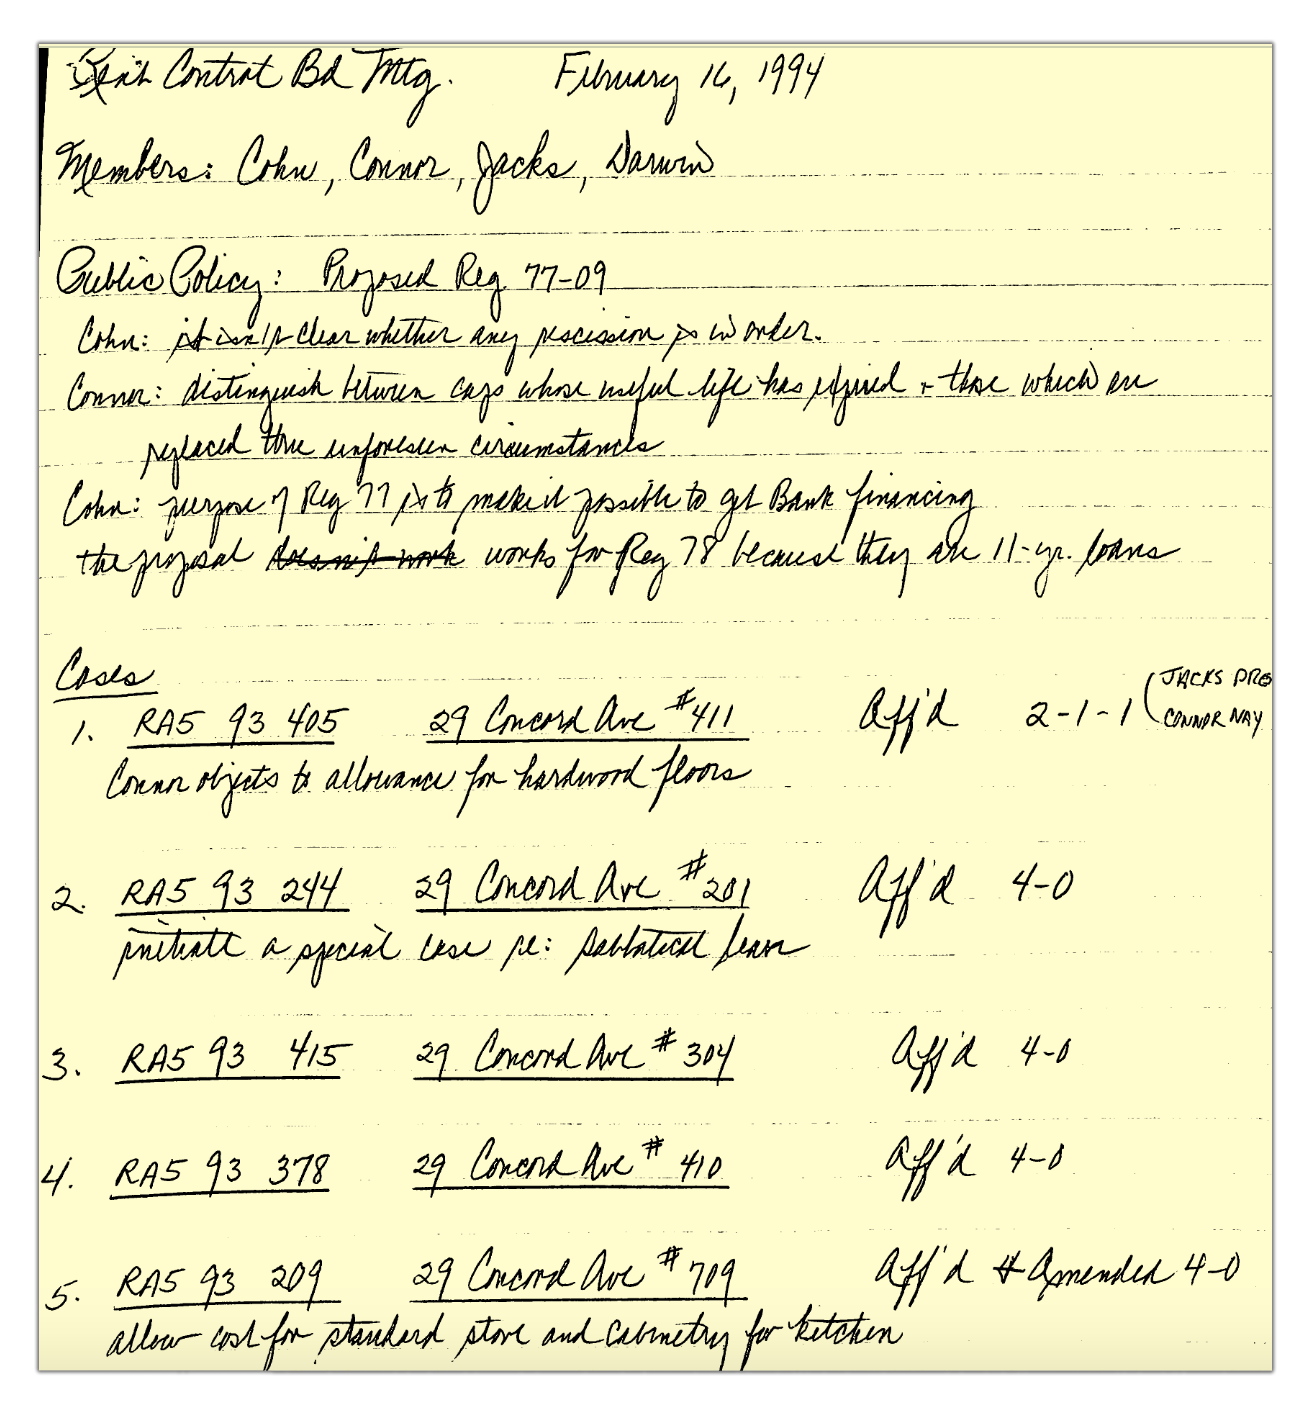 Rent Control Bd Mtg. February 16, 1994
Members: Cohn, Connor, Jacks, Darwin
Public Policy: Proposed Reg 77-09
Cohn: it isn't clear whether any rescission is in order.
Connor: distinguish between caps whose useful life has expired + those which are
replaced thru unforeseen circumstances
Cohn: purpose of Reg 77 is to make it possible to get Bank financing
the proposal doesn't work works for Reg 78 because they are 11-yr. loans
Cases
1. RA5 93 405 29 Concord Ave #411 Aff'd 2-1-1 (JACKS PRE
CONNOR NAY
Connor objects to allowance for hardwood floors
2. RA5 93 244 29 Concord Ave #201 Aff'd 4-0
initiate a special case re: sabbatical leave
3. RA5 93 415 29 Concord Ave #304 Aff'd 4-0
4. RA5 93 378 29 Concord Ave #410 Aff'd 4-0
5. RA5 93 209 29 Concord Ave #709 Aff'd + Amended 4-0
allow cost for standard stove and cabinetry for kitchen